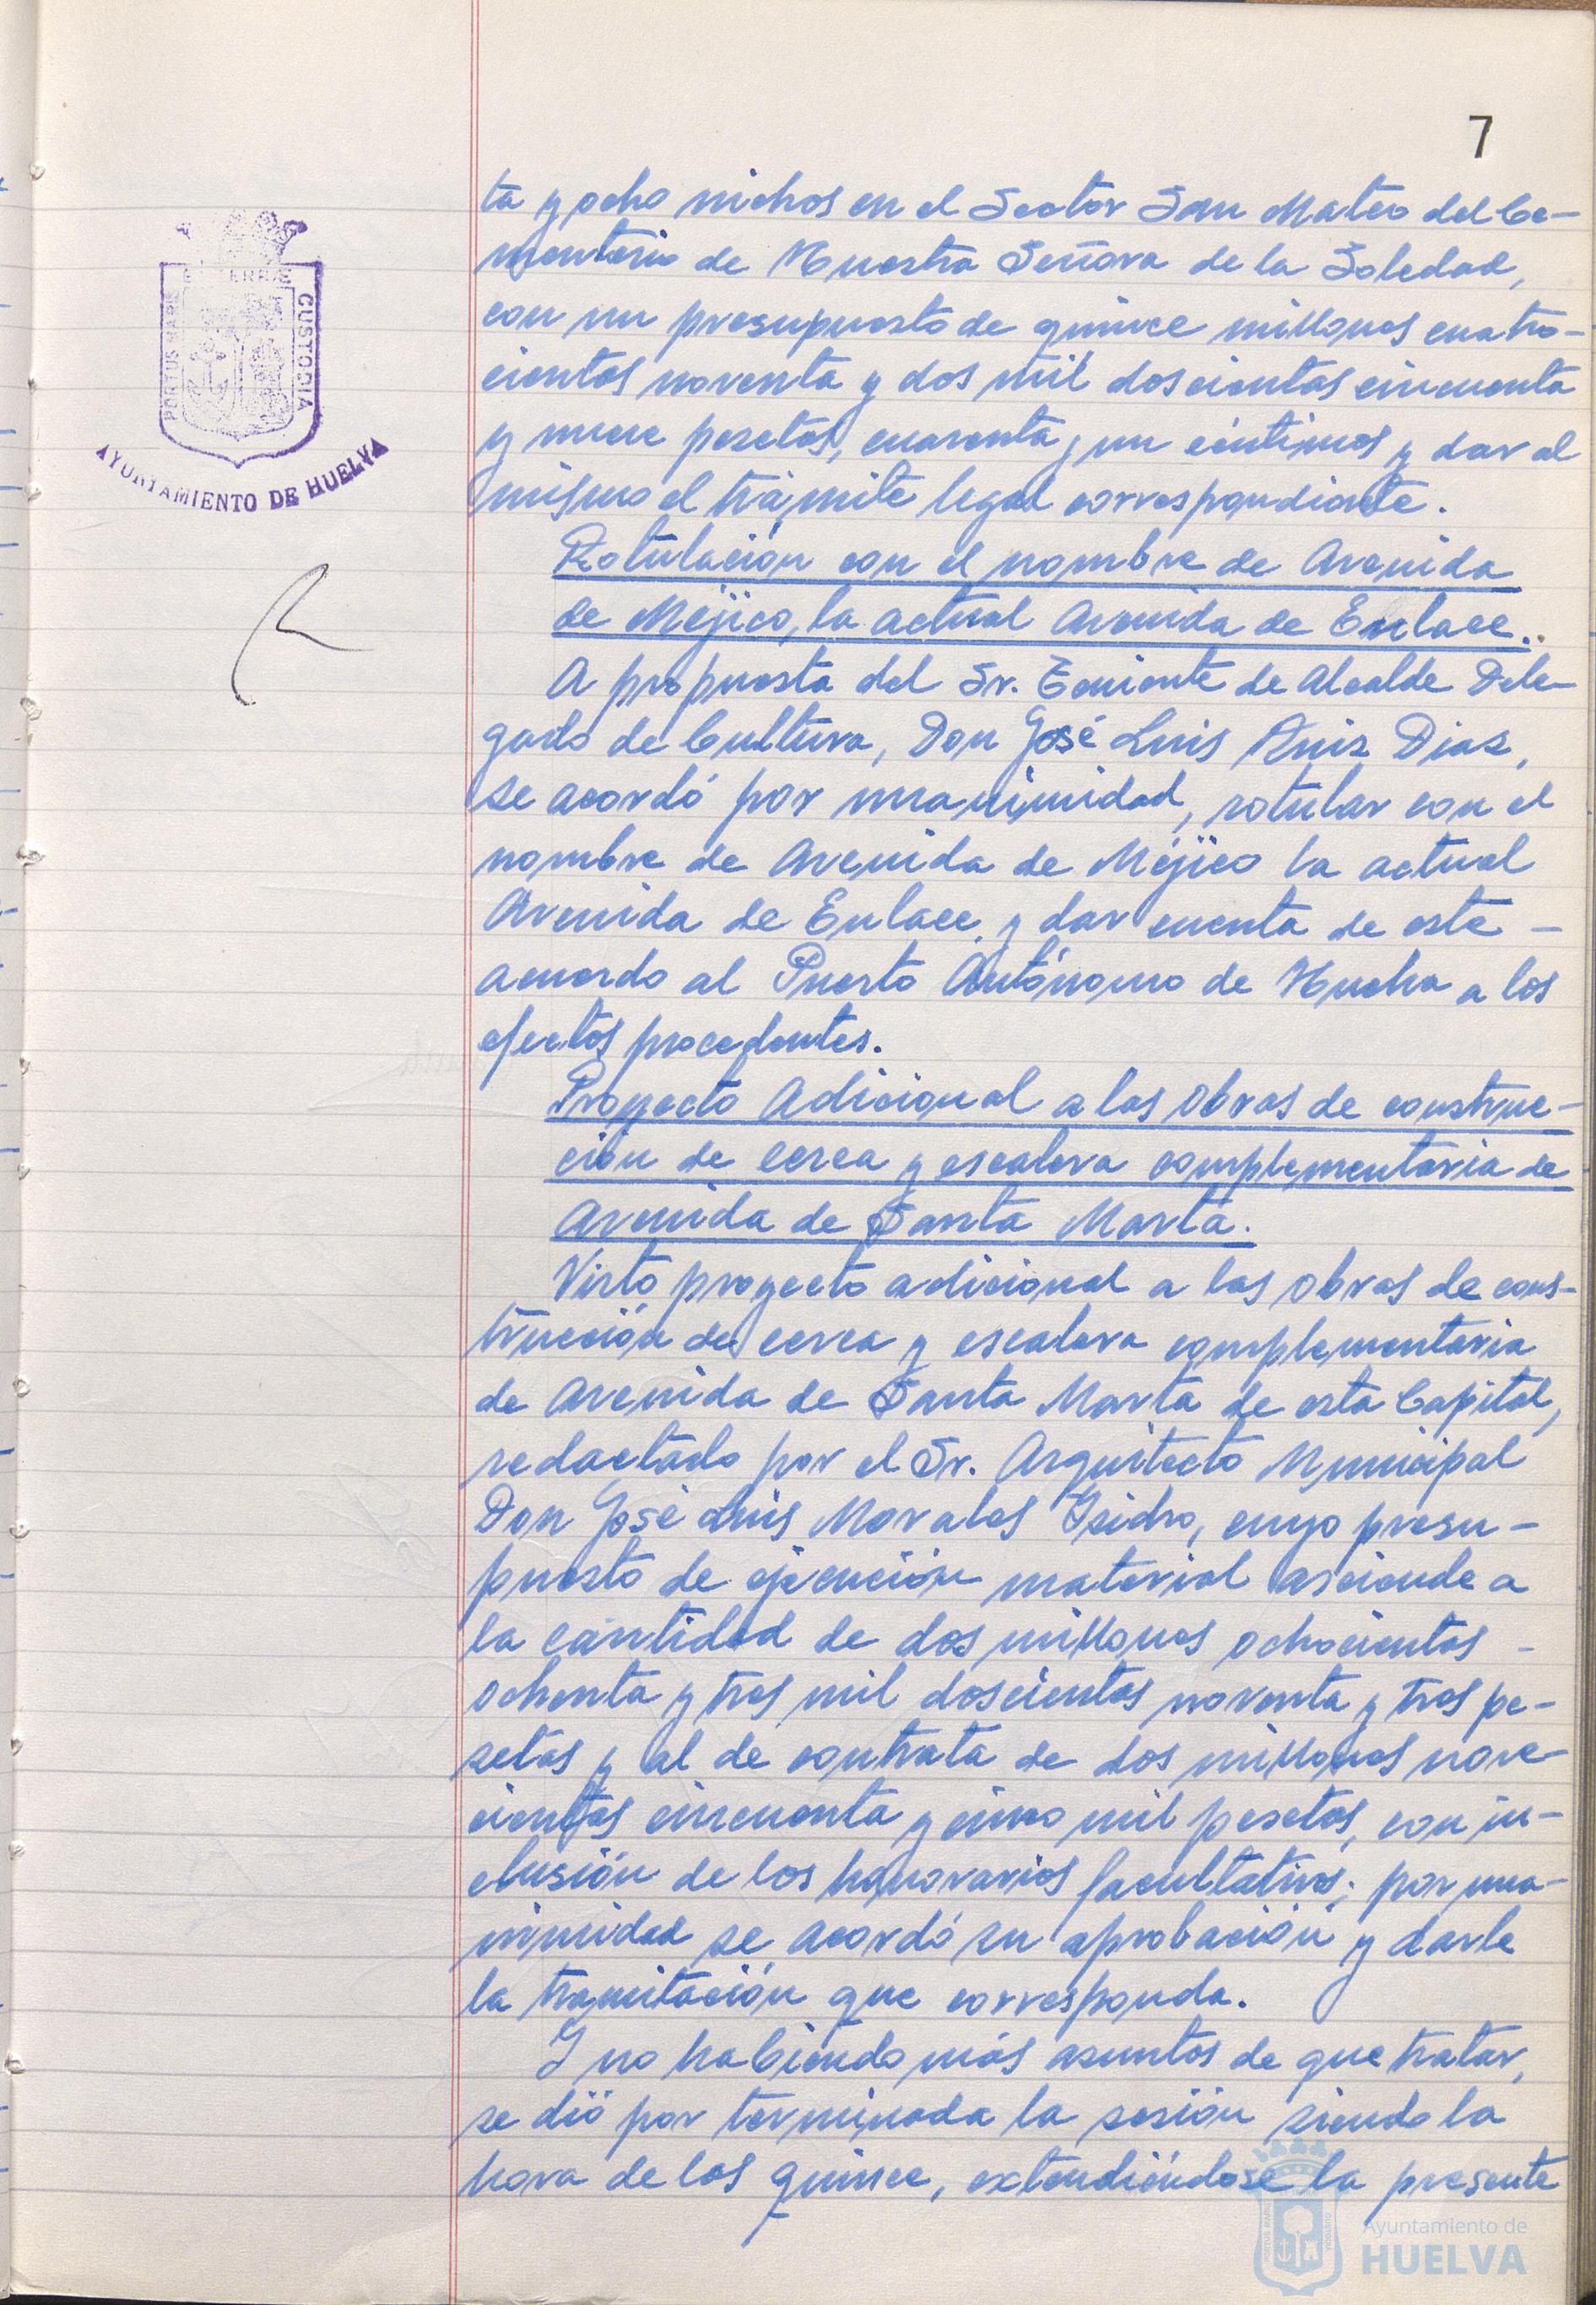 7
ta y ocho nichos en el Sector San Mateo del Ce-
menterio de Nuestra Señora de la Soledad,
con un presupuesto de quince millones cuatro-
cientas noventa y dos mil doscientas cincuenta
y nueve pesetas, cuarenta y un céntimos y dar al
mismo el trámite legal correspondiente.
Rotulación con el nombre de Avenida
de Méjico, la actual Avenida de Enlace.
A propuesta del Sr. Teniente de Alcalde Dele-
gado de Cultura, Don José Luis Ruiz Diaz,
se acordó por unanimidad, rotular con el
nombre de Avenida de Méjico la actual
Avenida de Enlace, y dar cuenta de este -
acuerdo al Puerto Autónomo de Huelva a los
efectos procedentes.
Proyecto Adicional a las obras de construc-
ción de cerca y escalera complementaria de
Avenida de Santa Marta.
Visto proyecto adicional a las obras de cons-
trucción de cerca y escalera complementaria
de Avenida de Santa Marta de esta Capital,
redactado por el Sr. Arquitecto Municipal
Don José Luis Morales Isidro, cuyo presu-
puesto de ejecución material asciende a
la cantidad de dos millones ochocientas -
ochenta y tres mil doscientas noventa y tres pe-
setas y al de contrata de dos millones nove-
cientas cincuenta y cinco mil pesetas, con in-
clusión de los honorarios facultativos; por una-
nimidad se acordó su aprobación y darle
la tramitación que corresponda.
Y no habiendo más asuntos de que tratar,
se dió por terminada la sesión siendo la
hora de las quince, extendiéndose la presente
PORTUS MARIS
ET TERRAE
CUSTODIA
AYUNTAMIENTO DE HUELVA
Ayuntamiento de
HUELVA